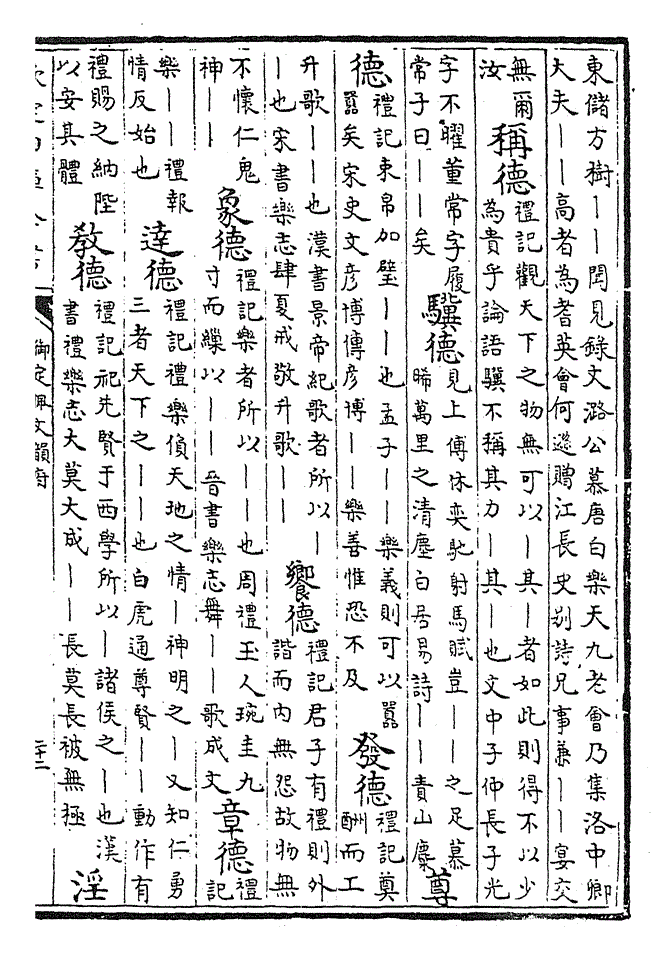 東儲方樹｜｜聞見錄文潞公慕唐白樂天九老會乃集洛中卿
大夫｜｜高者為耆英會何遜贈江長史別詩兄事兼｜｜宴交
無爾
汝
稱德
禮記觀天下之物無可以｜其｜者如此則得不以少
為貴乎論語驥不稱其力｜其｜也文中子仲長子光
字不曜董常字履
常子曰｜｜矣
驥德
見上傅休奕馳射馬賦豈｜｜之足慕
晞萬里之清塵白居易詩｜｜責山麋
尊
德
禮記束帛加璧｜｜也孟子｜｜樂義則可以囂
囂矣宋史文彥博傳彥博｜｜樂善惟恐不及
發德
禮記奠
酬而工
升歌｜｜也漢書景帝紀歌者所以｜
｜也宋書樂志肆夏戒敬升歌｜｜
饗德
禮記君子有禮則外
諧而內無怨故物無
不懷仁鬼
神｜｜
象德
禮記樂者所以｜｜也周禮玉人琬圭九
寸而繅以｜｜晉書樂志舞｜｜歌成文
章德
禮
記
樂｜｜禮報
情反始也
達德
禮記禮樂偩天地之情｜神明之｜又知仁勇
三者天下之｜｜也白虎通尊賢｜｜動作有
禮賜之納陛
以安其體
教德
禮記祀先賢于西學所以｜諸侯之｜也漢
書禮樂志大莫大成｜｜長莫長被無極
淫
御定佩文韻府